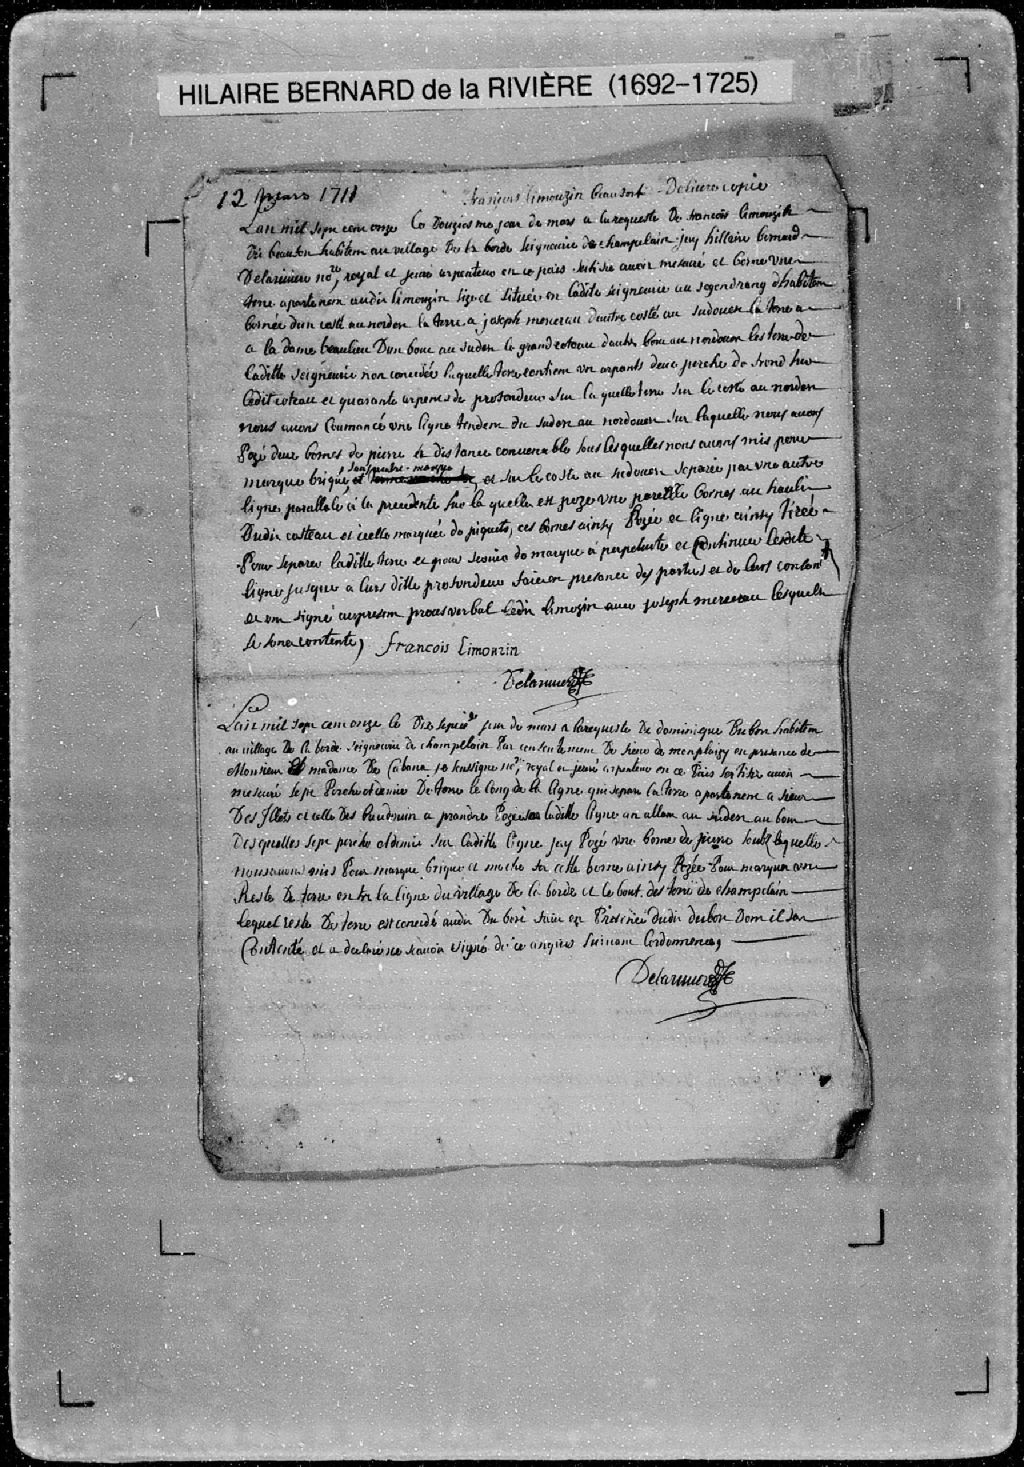 HILAIRE BERNARD de la RIVIÈRE (1692–1725)
12 mars 1711
francois limouzin beaufort Delivré copie
Lan mil sept cent onze Le Douziesme jour de mars a la requeste De francois limouzin
Dit beaufort habitant au village De la borde seigneurie de champelain jay hillaire bernard
Delariviere nore royal et juré arpenteur en ce pais certifie avoir mesuré et borné une
terre apartenant audit limouzin size et sittuée en Ladite seigneurie au segond rang dhabitans
bornée dun costé au nordest la terre a joseph merceau dautre costé au sudouest la terre a
a la dame beaulieu Dun bout au sudest le grand coteau dautre bout au nordouest les terre de
Laditte seigneurie non concedée laquelle terre contient un arpants deux perche de frond sur
Ledit coteau et quarante arpents de profondeur sur laquelle terre sur le costé au nordest
nous avons Coumancé une ligne tendent du sudest au nordouest sur laquelle nous avons
Pozé deux bornes de pierre et distance convenable sous lesquelles nous avons mis pour
marque brique et sur le costé au sudouest separée par une autre
ligne parallele a la precedente sur la quelle est pozé une pareille bornes au hault
Dudit costeau et icelle marquée de piquets, ces bornes ainsy Pozée et ligne ainsy tirée
Pour separer laditte terre et pour servir de marque a perpetuité et Continuer lesdite
ligne jusque a leurs ditte profondeur faite en presance des parties et de leurs consent
et ont signé au present proces verbal Ledit limozin avec joseph merceau lesquels
se sont contenté,
francois Limouzin
Delariviere
Lan mil sept cent onze le Dix sept jour de mars a la requeste De dominique Dubor habitant
au village De la borde seigneurie de champelain Par consentement De
Monsieur et madame De Cabana je soussigné nore royal et juré arpenteur en ce Pais certifie avoir
mesuré sept Perche et demie De terre le long de la ligne qui separe la terre apartenant a sieur
Des Illets et celle Des Baudouin a prandre ladite ligne en allant au sudest au bout
Desquelles sept perche et demie sur Laditte ligne jay Pozé une borne de pierre soubz laquelle
nous avons mis Pour marque brique et cette borne ainsy Pozée Pour marquer un
Reste De terre entre la ligne du village De la borde et le bout des terre de champelain
lequel reste De terre est concedé audit Dubord fait en Presence dudit dubor Dont il san
Contenté et a declaré ne scavoir signé de ce enquis suivant Lordonnence,
Delariviere